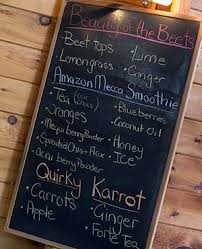 Beauty of the Beets
Beet tops
Lime
Lemongrass
Ginger
Amazon Mecca Smoothie
Tea
Blueberries
Oranges
Coconut Oil
Maqui berry Powder
Honey
Sprouted Chia + Flax
ICE
Acai berry Powder
Quirky Karrot
Carrots
Ginger
Apple
Forte Tea